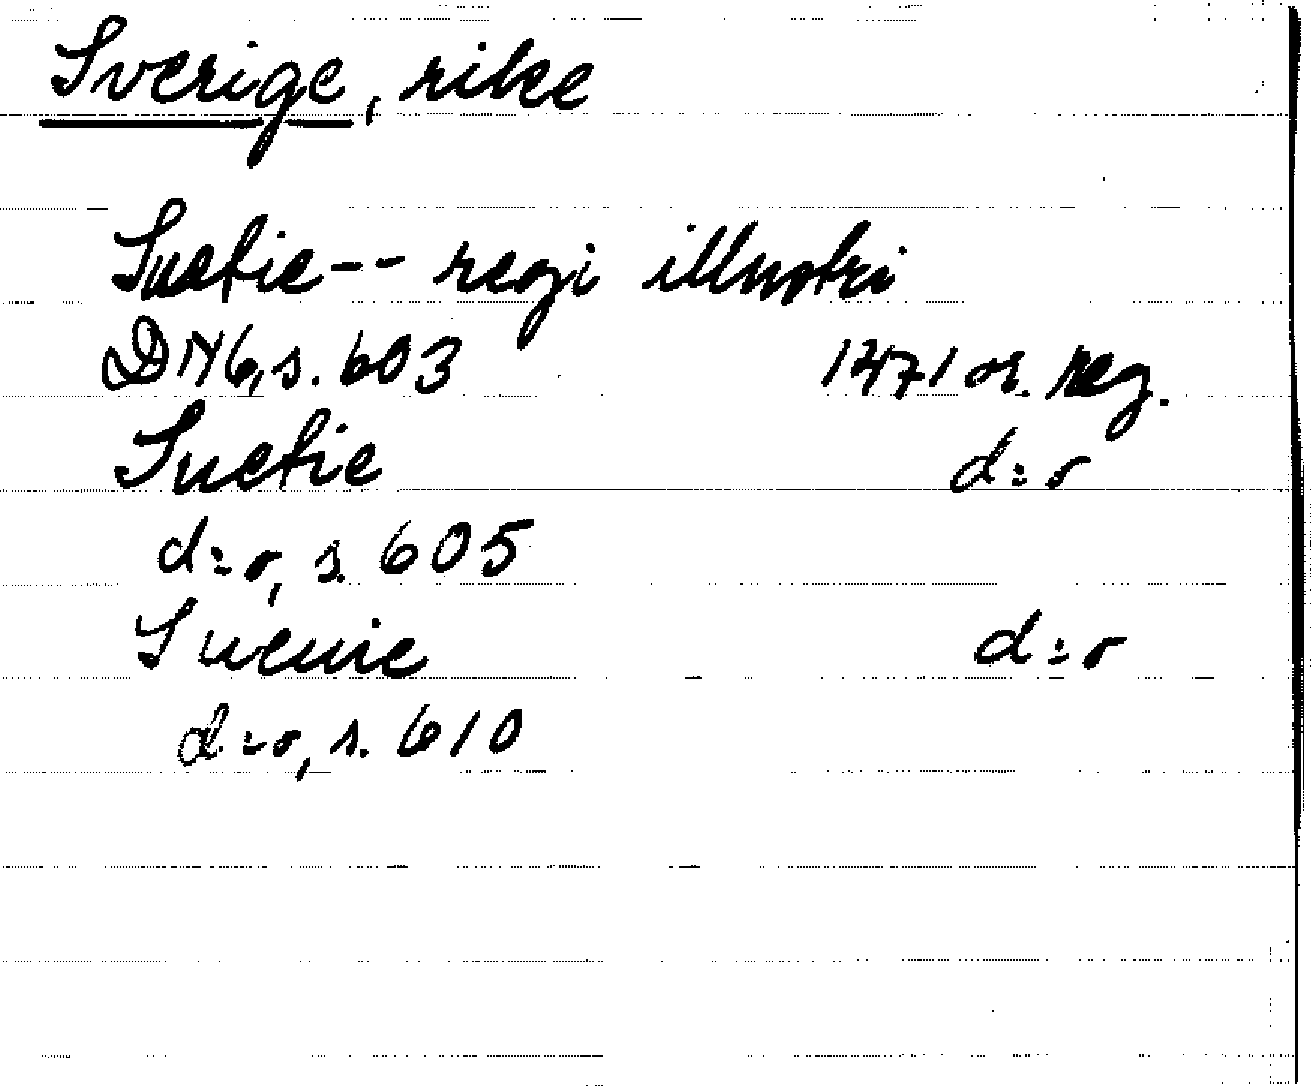 Sverige, rike
Suetie -- regi illustri
DN6, s. 603 1471 or. reg.
Suetie d:o
d:o, s. 605
Suecie d:o
d:o, s. 610